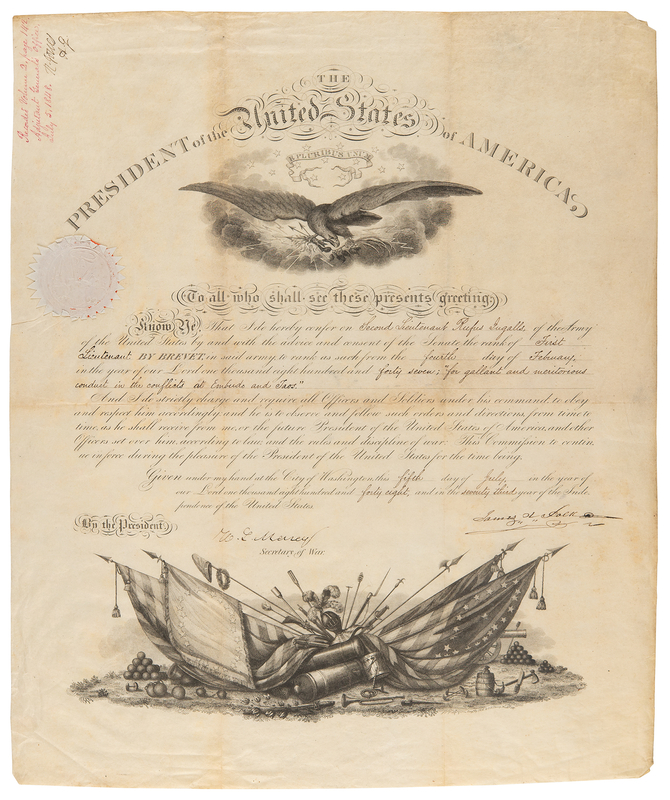 THE
United States
PRESIDENT of the of AMERICA,
E PLURIBUS UNUM
To all who shall see these presents greeting;
Know Ye, That I do hereby confer on Second Lieutenant Rufus Ingalls of the Army
of the United States by and with the advice and consent of the Senate the rank of First
Lieutenant BY BREVET, in said army, to rank as such from the fourth day of February,
in the year of our Lord one thousand eight hundred and forty seven; "for gallant and meritorious
conduct in the conflicts at Embudo and Taos."
And I do strictly charge and require all Officers and Soldiers under his command to obey
and respect him accordingly: and he is to observe and follow such orders and directions, from time to
time, as he shall receive from me, or the future President of the United States of America, and other
Officers set over him, according to law, and the rules and discipline of war. This Commission to contin
ue in force during the pleasure of the President of the United States for the time being.
Given under my hand at the City of Washington, this fifth day of July, in the year of
our Lord one thousand eight hundred and forty eight, and in the seventy third year of the Inde
pendence of the United States.
By the President,
James K. Polk
W. L. Marcy
Secretary of War.
Recorded Volume 3, page
Adjutant General's Office
July